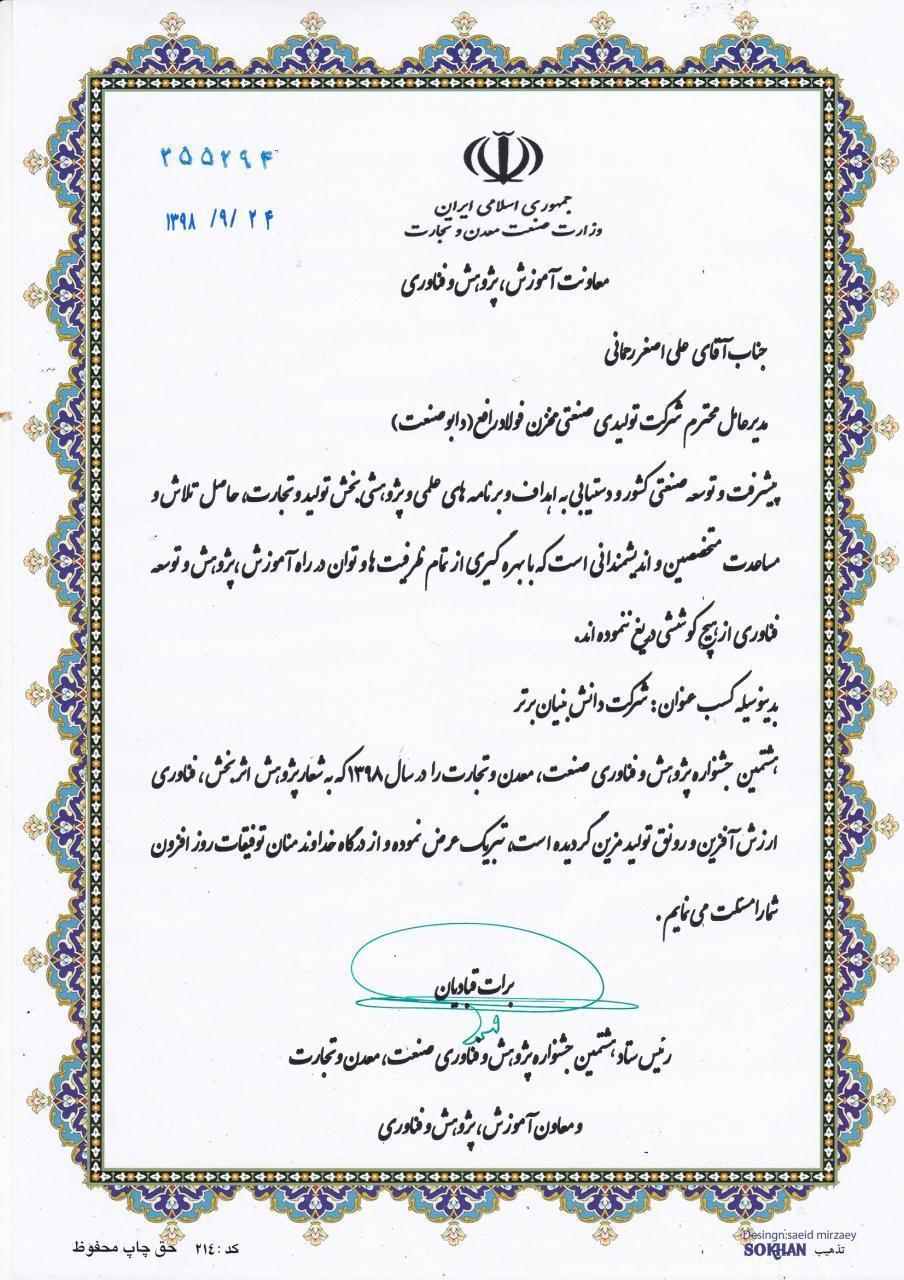 ۲۵۵۲۹۴
۱۳۹۸ /۹/ ۲۴
جمهوری اسلامی ایران
وزارت صنعت معدن و تجارت
معاونت آموزش، پژوهش و فناوری
جناب آقای علی اصغر رحمانی
مدیرعامل محترم شرکت تولیدی صنعتی مخزن فولاد رافع (دابو صنعت)
پیشرفت و توسعه صنعتی کشور و دستیابی به اهداف و برنامه های علمی و پژوهشی بخش تولید و تجارت، حاصل تلاش و
مساعدت متخصصین و اندیشمندانی است که با بهره گیری از تمام ظرفیت ها و توان در راه آموزش، پژوهش و توسعه
فناوری از هیچ کوششی دریغ ننموده اند.
بدینوسیله کسب عنوان: شرکت دانش بنیان برتر
هشتمین جشنواره پژوهش و فناوری صنعت، معدن و تجارت را در سال ۱۳۹۸ که به شعار پژوهش اثربخش، فناوری
ارزش آفرین و رونق تولید مزین گردیده است، تبریک عرض نموده و از درگاه خداوند منان توفیقات روز افزون
شما را مسئلت می نمایم.
برات قبادیان
رئیس ستاد هشتمین جشنواره پژوهش و فناوری صنعت، معدن و تجارت
و معاون آموزش، پژوهش و فناوری
Desingn:saeid mirzaey
تذهیب SOKHAN
کد: ۲۱٤ حق چاپ محفوظ